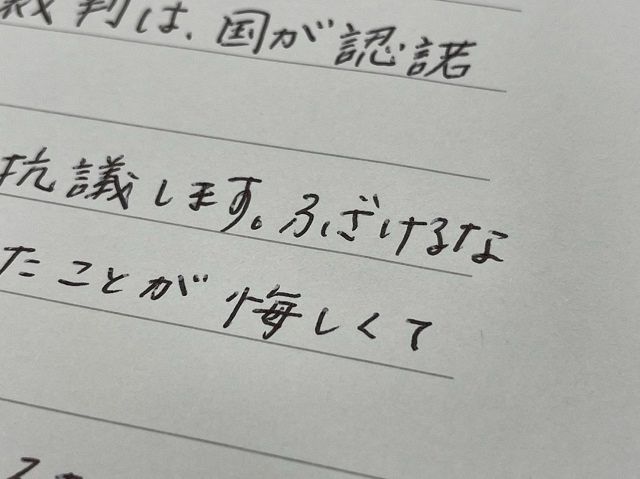 裁判は、国が認諾
抗議します。ふざけるな
たことが悔しくて